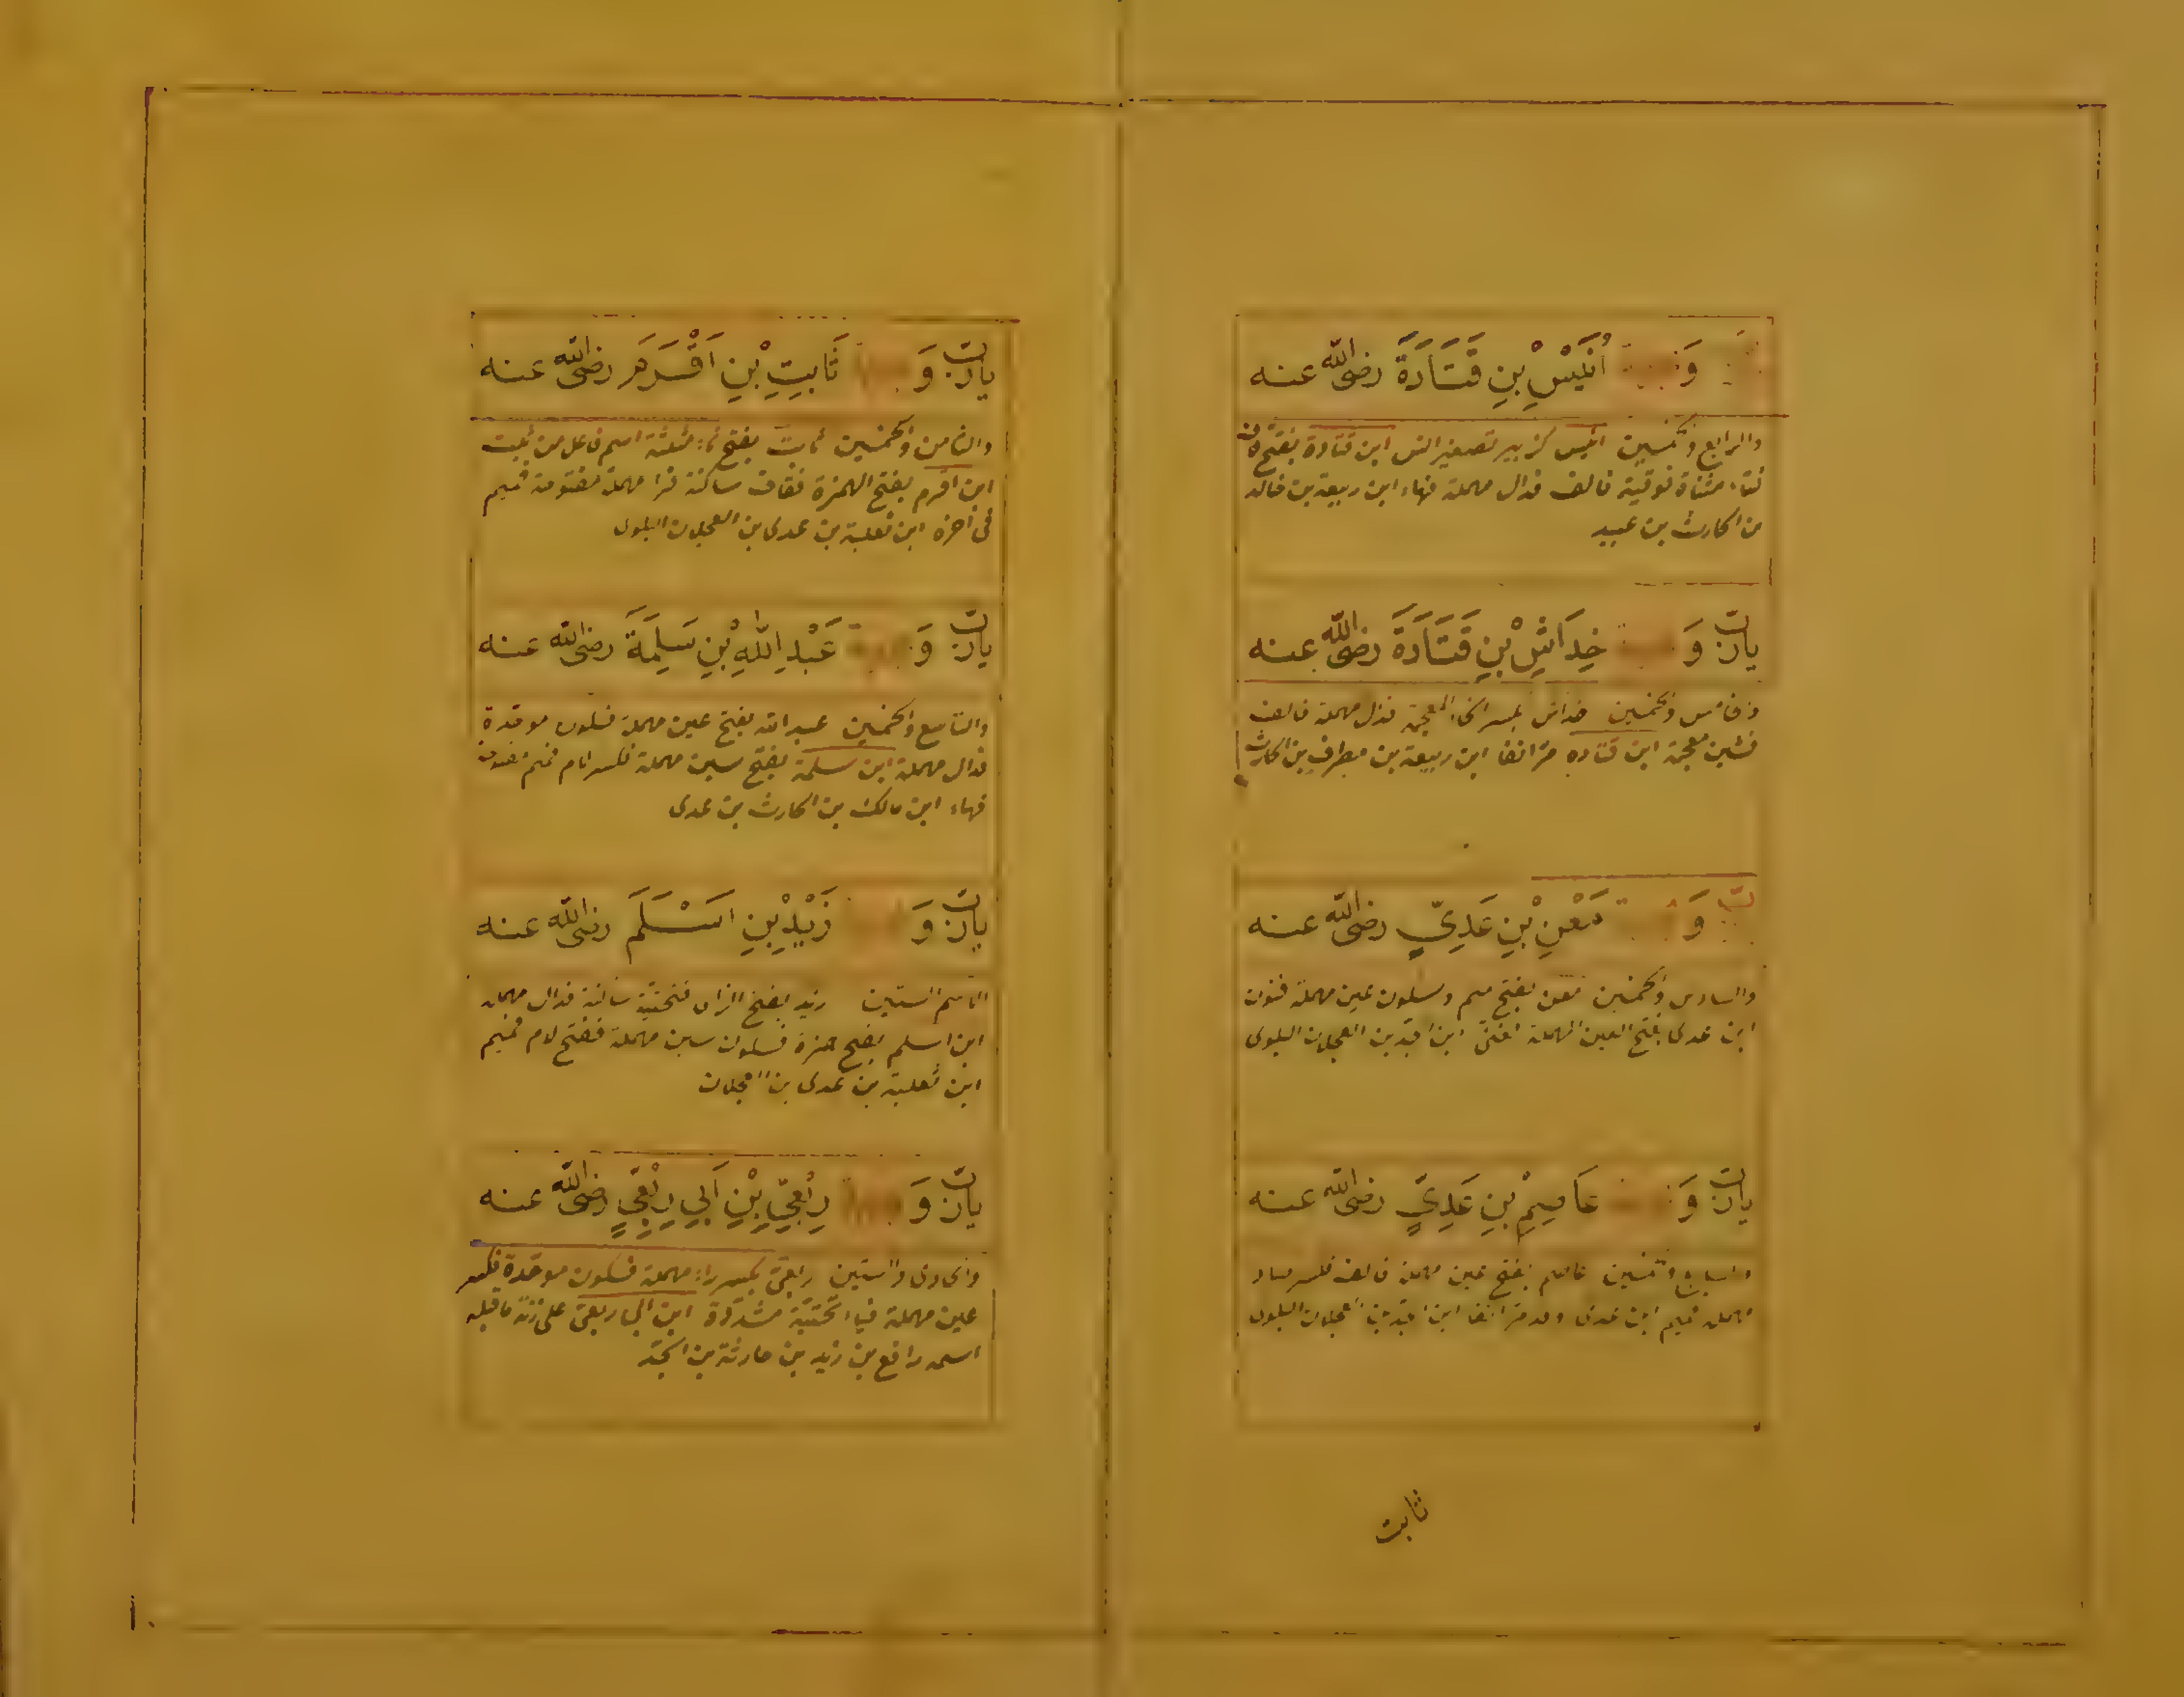 وَ اُنَيْسِ بْنِ قَتَادَةَ رضى الله عنه
والرابع والخمسين انيس كزبير تصغير انس ابن قتادة بفتح قاف
فتاء مثناة فوقية فالف فدال مهملة فهاء ابن ربيعة بن خالد
بن الحارث بن عبيد
يارب وَ خِدَاشِ بْنِ قَتَادَةَ رضى الله عنه
والخمسين خداش بكسر الخاء المعجمة فدال مهملة فالف
فشين معجمة ابن قتاده مر انفا ابن ربيعة بن مطرف بن الحارث
وَ مَعْنِ بْنِ عَدِيٍّ رضى الله عنه
والسادس والخمسين معن بفتح ميم وسكون عين مهملة فنون
ابن عدى بفتح العين المهملة ابن الجد بن العجلان البلوى
يارب وَ عَاصِمِ بْنِ عَدِيٍّ رضى الله عنه
والسابع والخمسين عاصم بفتح عين مهملة فالف فكسر صاد
مهملة فميم ابن عدى مر انفا ابن الجد بن العجلان البلوى
ثابت
يارب وَ ثَابِتِ بْنِ اَقْرَمَ رضى الله عنه
والثامن والخمسين ثابت بفتح ثاء مثلثة اسم فاعل من ثبت
ابن اقرم بفتح الهمزة فقاف ساكنة فرا مهملة مفتوحة فميم
فى آخره ابن ثعلبة بن عدى بن العجلان البلوى
يارب وَ عَبْدِ اللّٰهِ بْنِ سَلِمَةَ رضى الله عنه
والتاسع والخمسين عبد الله بفتح عين مهملة فسكون موحدة
فدال مهملة ابن سلمة بفتح سين مهملة فكسر لام فميم مفتوحة
فهاء ابن مالك بن الحارث بن عدى
يارب وَ زَيْدِ بْنِ اَسْلَمَ رضى الله عنه
الستين زيد بفتح الزاى فتحتية ساكنة فدال مهملة
ابن اسلم بفتح همزة فسكون سين مهملة ففتح لام فميم
ابن ثعلبة بن عدى بن العجلان
يارب وَ رِبْعِيِّ بْنِ اَبِي رِبْعِيٍّ رضى الله عنه
والحادى والستين ربعى بكسر راء مهملة فسكون موحدة فكسر
عين مهملة فياء تحتية مشددة ابن ابى ربعى على زنة ما قبله
اسمه رافع بن زيد بن حارثة بن الجد